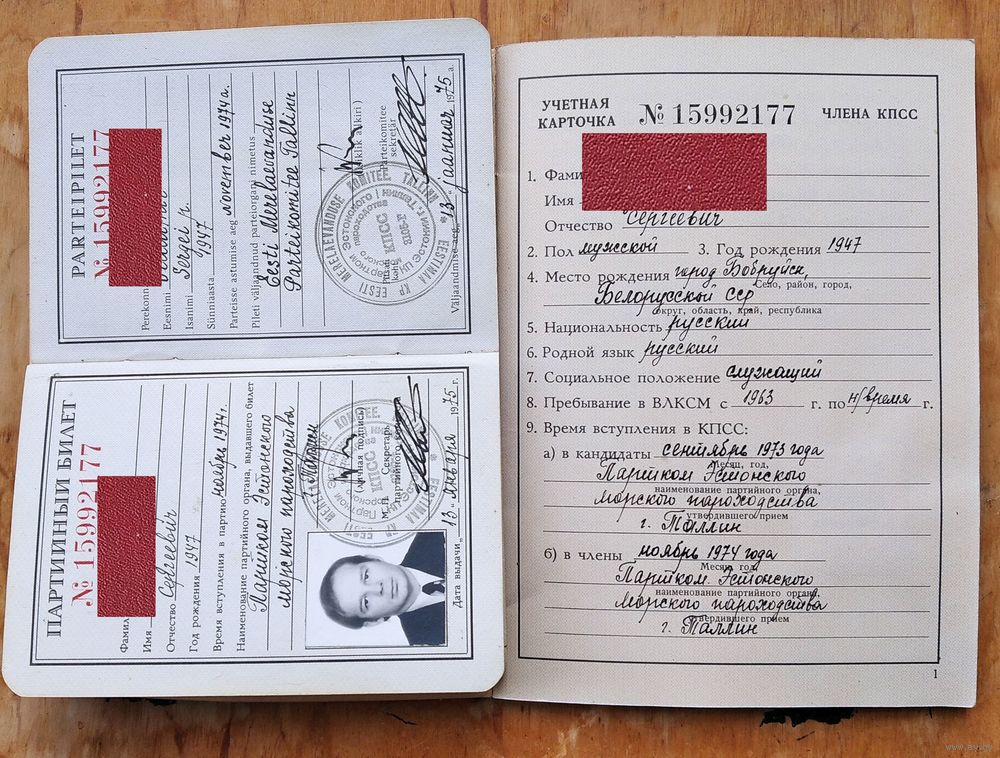 PARTEIPILET
№ 15992177
Perekonn
Eesnimi
Isanimi Sergei p.
Sünniaasta 1947
Parteisse astumise aeg november 1974 a.
Pileti väljaandnud parteiorgani nimetus
Eesti Merelaevanduse
Parteikomitee Tallinn
(Isiklik allkiri)
Pitsati koht
Parteikomitee sekretär
Väljaandmise aeg „13" jaanuar 1975 a.
EESTI MERELAEVANDUSE KOMITEE TALLINN
EESTIMAA KP
КПСС
ПАРТИЙНЫЙ БИЛЕТ
№ 15992177
Фамил
Имя
Отчество Сергеевич
Год рождения 1947
Время вступления в партию ноябрь 1974 г.
Наименование партийного органа, выдавшего билет
Партком Эстонского
морского пароходства
г. Таллин
Личная подпись
М. П. Секретарь
партийного
Дата выдачи „13" января 1975 г.
УЧЕТНАЯ
КАРТОЧКА № 15992177 ЧЛЕНА КПСС
1. Фами
Имя
Отчество Сергеевич
2. Пол мужской 3. Год рождения 1947
4. Место рождения город Бобруйск,
Село, район, город,
Белорусской ССР
округ, область, край, республика
5. Национальность русский
6. Родной язык русский
7. Социальное положение служащий
8. Пребывание в ВЛКСМ с 1963 г. по н/время г.
9. Время вступления в КПСС:
а) в кандидаты сентябрь 1973 года
Месяц, год,
Партком Эстонского
наименование партийного органа,
морского пароходства
утвердившего прием
г. Таллин
б) в члены ноябрь 1974 года
Месяц, год,
Партком Эстонского
наименование партийного органа,
морского пароходства
утвердившего прием
г. Таллин
1